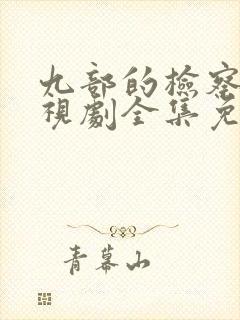 九部的檢察
視劇全集免
青幕山